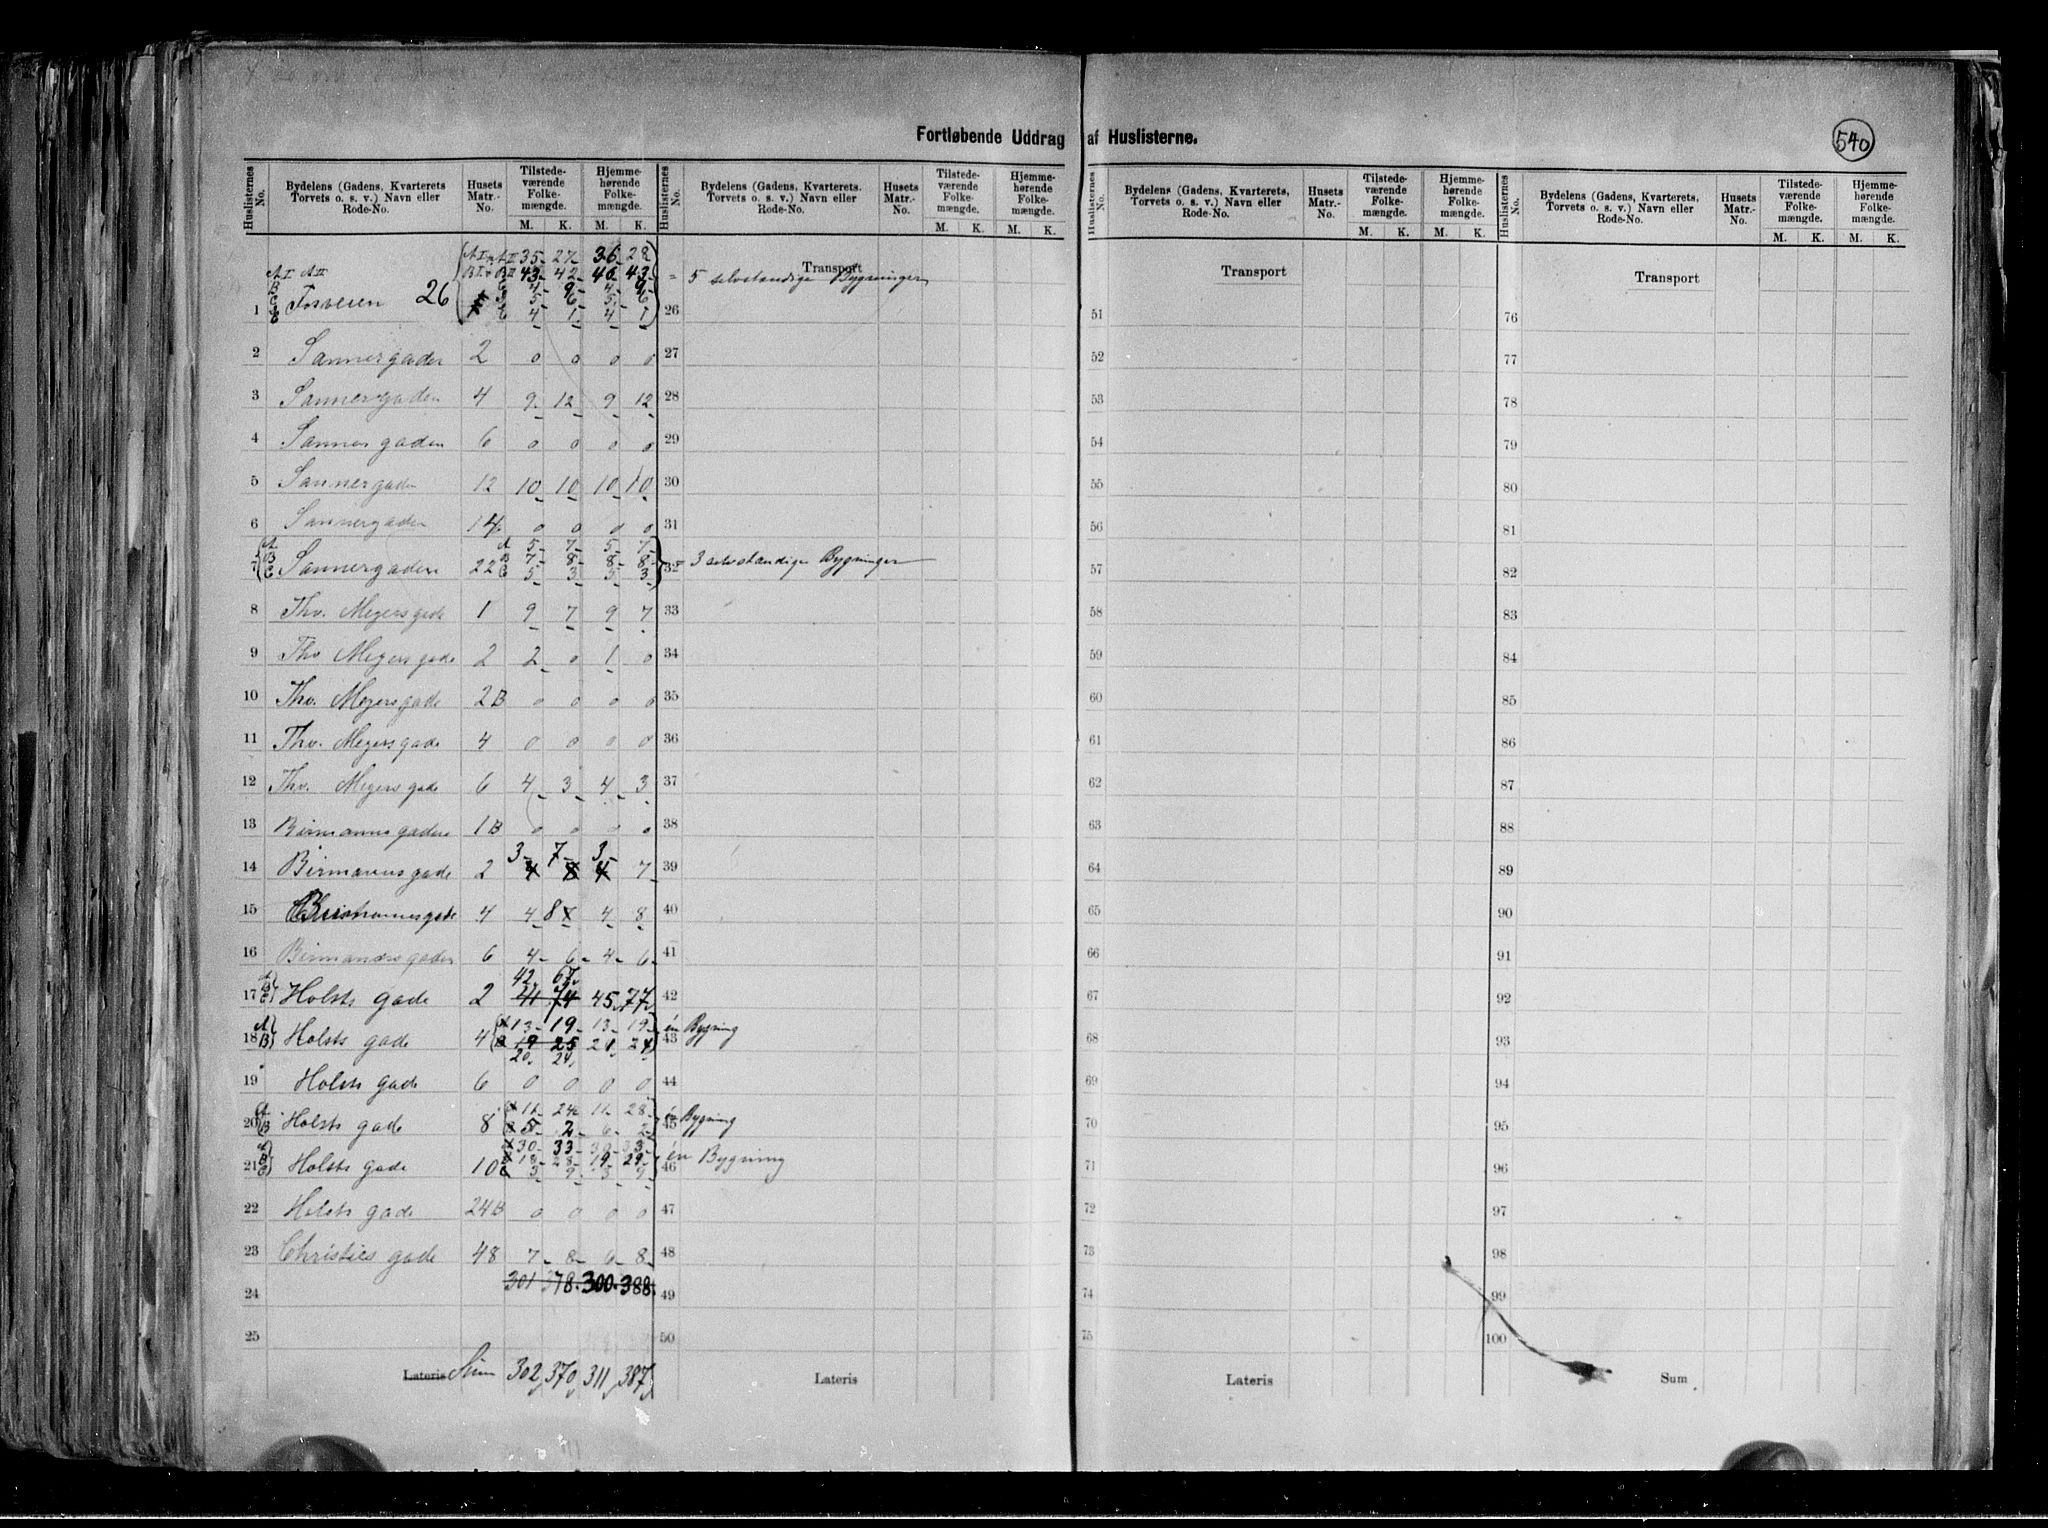 Fortløbende Uddrag af Huslisterne.
540
Huslisternes No. | Bydelens (Gadens, Kvarterets Torvets o. s. v.) Navn eller Rode-No. | Husets Matr.-No. | Tilstedeværende Folkemængde. M. K. | Hjemmehørende Folkemængde. M. K.
Huslisternes No. | Bydelens (Gadens, Kvarterets. Torvets o. s. v.) Navn eller Rode-No. | Husets Matr.-No. | Tilstedeværende Folkemængde. M. K. | Hjemmehørende Folkemængde. M. K.
Huslisternes No. | Bydelens (Gadens, Kvarterets, Torvets o. s. v.) Navn eller Rode-No. | Husets Matr.-No. | Tilstedeværende Folkemængde. M. K. | Hjemmehørende Folkemængde. M. K.
Huslisternes No. | Bydelens (Gadens, Kvarterets, Torvets o. s. v.) Navn eller Rode-No. | Husets Matr.-No. | Tilstedeværende Folkemængde. M. K. | Hjemmehørende Folkemængde. M. K.
Transport Transport Transport
A I + A II 35 27 36 28
B I + B II 43 42 46 43 = 5 selvstændige Bygninger
4 9 4 9
5 6 5 6
1 Fosveien 26 4 1 4 1 26 51 76
2 Sannergaden 2 0 0 0 0 27 52 77
3 Sannergaden 4 9 12 9 12 28 53 78
4 Sannergaden 6 0 0 0 0 29 54 79
5 Sannergaden 12 10 10 10 10 30 55 80
6 Sannergaden 14 0 0 0 0 31 56 81
A 5 7 5 7
7 Sannergaden 22 B 7 8 8 8 32 = 3 selvstændige Bygninger 57 82
C 5 3 5 3
8 Thv. Meyersgade 1 9 7 9 7 33 58 83
9 Thv Meyersgade 2 2 0 1 0 34 59 84
10 Thv. Meyersgade 2B 0 0 0 0 35 60 85
11 Thv. Meyersgade 4 0 0 0 0 36 61 86
12 Thv. Meyersgade 6 4 3 4 3 37 62 87
13 Birmannsgaden 1B 0 0 0 0 38 63 88
3 7 3
14 Birmannsgade 2 4 8 4 7 39 64 89
15 4 4 8 4 8 40 65 90
16 Birmannsgaden 6 4 6 4 6 41 66 91
42 67
17 Holsts gade 2 41 74 45 77 42 67 92
A 13 19 13 19 én Bygning
18 Holsts gade 4 B 19 25 21 24 43 68 93
20 24
19 Holsts gade 6 0 0 0 0 44 69 94
11 24 11 28
20 Holsts gade 8 5 2 6 2 45 én Bygning 70 95
30 33 30 33
21 Holsts gade 10 18 28 19 29 46 én Bygning 71 96
3 9 3 9
22 Holsts gade 24B 0 0 0 0 47 72 97
23 Christies gade 48 7 8 6 8 48 73 98
301 378 300 388
24 49 74 99
25 50 75 100
Lateris Sum 302 370 311 387 Lateris Lateris Sum